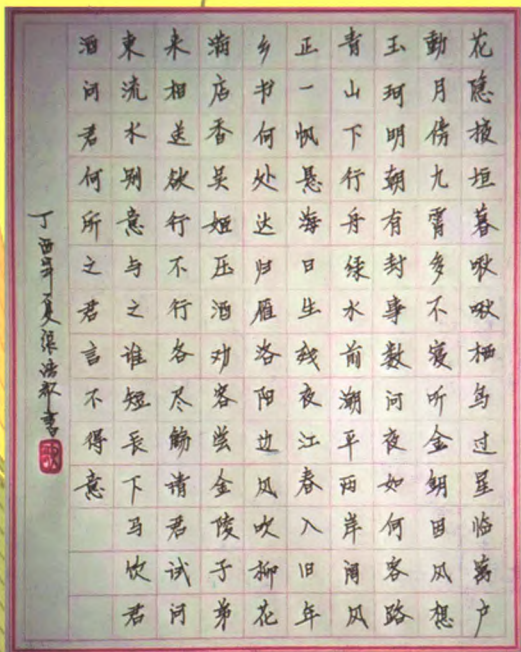 花隐掖垣暮啾啾栖鸟过星临萬户
動月傍九霄多不寝听金钥因风想
玉珂明朝有封事数问夜如何客路
青山下行舟绿水前潮平两岸阔风
正一帆悬海日生残夜江春入旧年
乡书何处达归雁洛阳边风吹柳花
满店香吴姬压酒劝客尝金陵子弟
来相送欲行不行各尽觞请君试问
東流水别意与之谁短长下马饮君
酒问君何所之君言不得意
丁酉年夏書